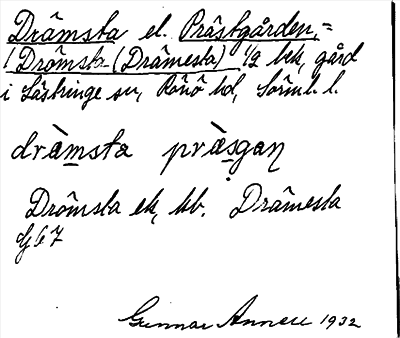 Drâmsta el. Prästgården,=
/ Drömsta (Drâmesta) 1/2 bek, gård
i Lästringe sn, Rönö hd, Sörml. l.
dràmsta präsgaŋ
Drömsta ek, kb. Drâmesta
G 67
Gunnar Annell 1932